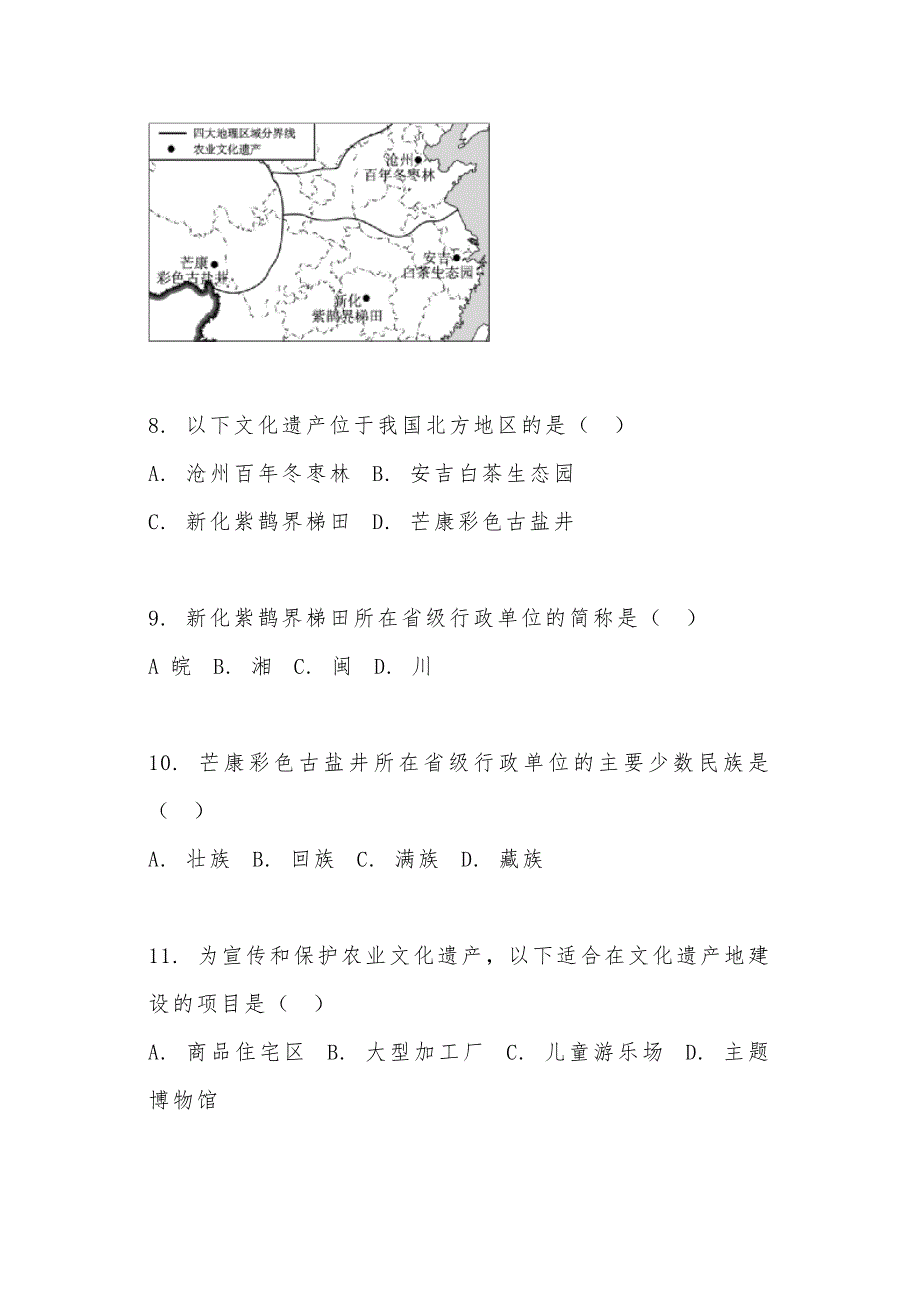 四大地理区域分界线
农业文化遗产
沧州
百年冬枣林
安吉
白茶生态园
芒康
彩色古盐井
新化
紫鹊界梯田
8. 以下文化遗产位于我国北方地区的是（ ）
A. 沧州百年冬枣林 B. 安吉白茶生态园
C. 新化紫鹊界梯田 D. 芒康彩色古盐井
9. 新化紫鹊界梯田所在省级行政单位的简称是（ ）
A 皖 B. 湘 C. 闽 D. 川
10. 芒康彩色古盐井所在省级行政单位的主要少数民族是
（ ）
A. 壮族 B. 回族 C. 满族 D. 藏族
11. 为宣传和保护农业文化遗产，以下适合在文化遗产地建
设的项目是（ ）
A. 商品住宅区 B. 大型加工厂 C. 儿童游乐场 D. 主题
博物馆